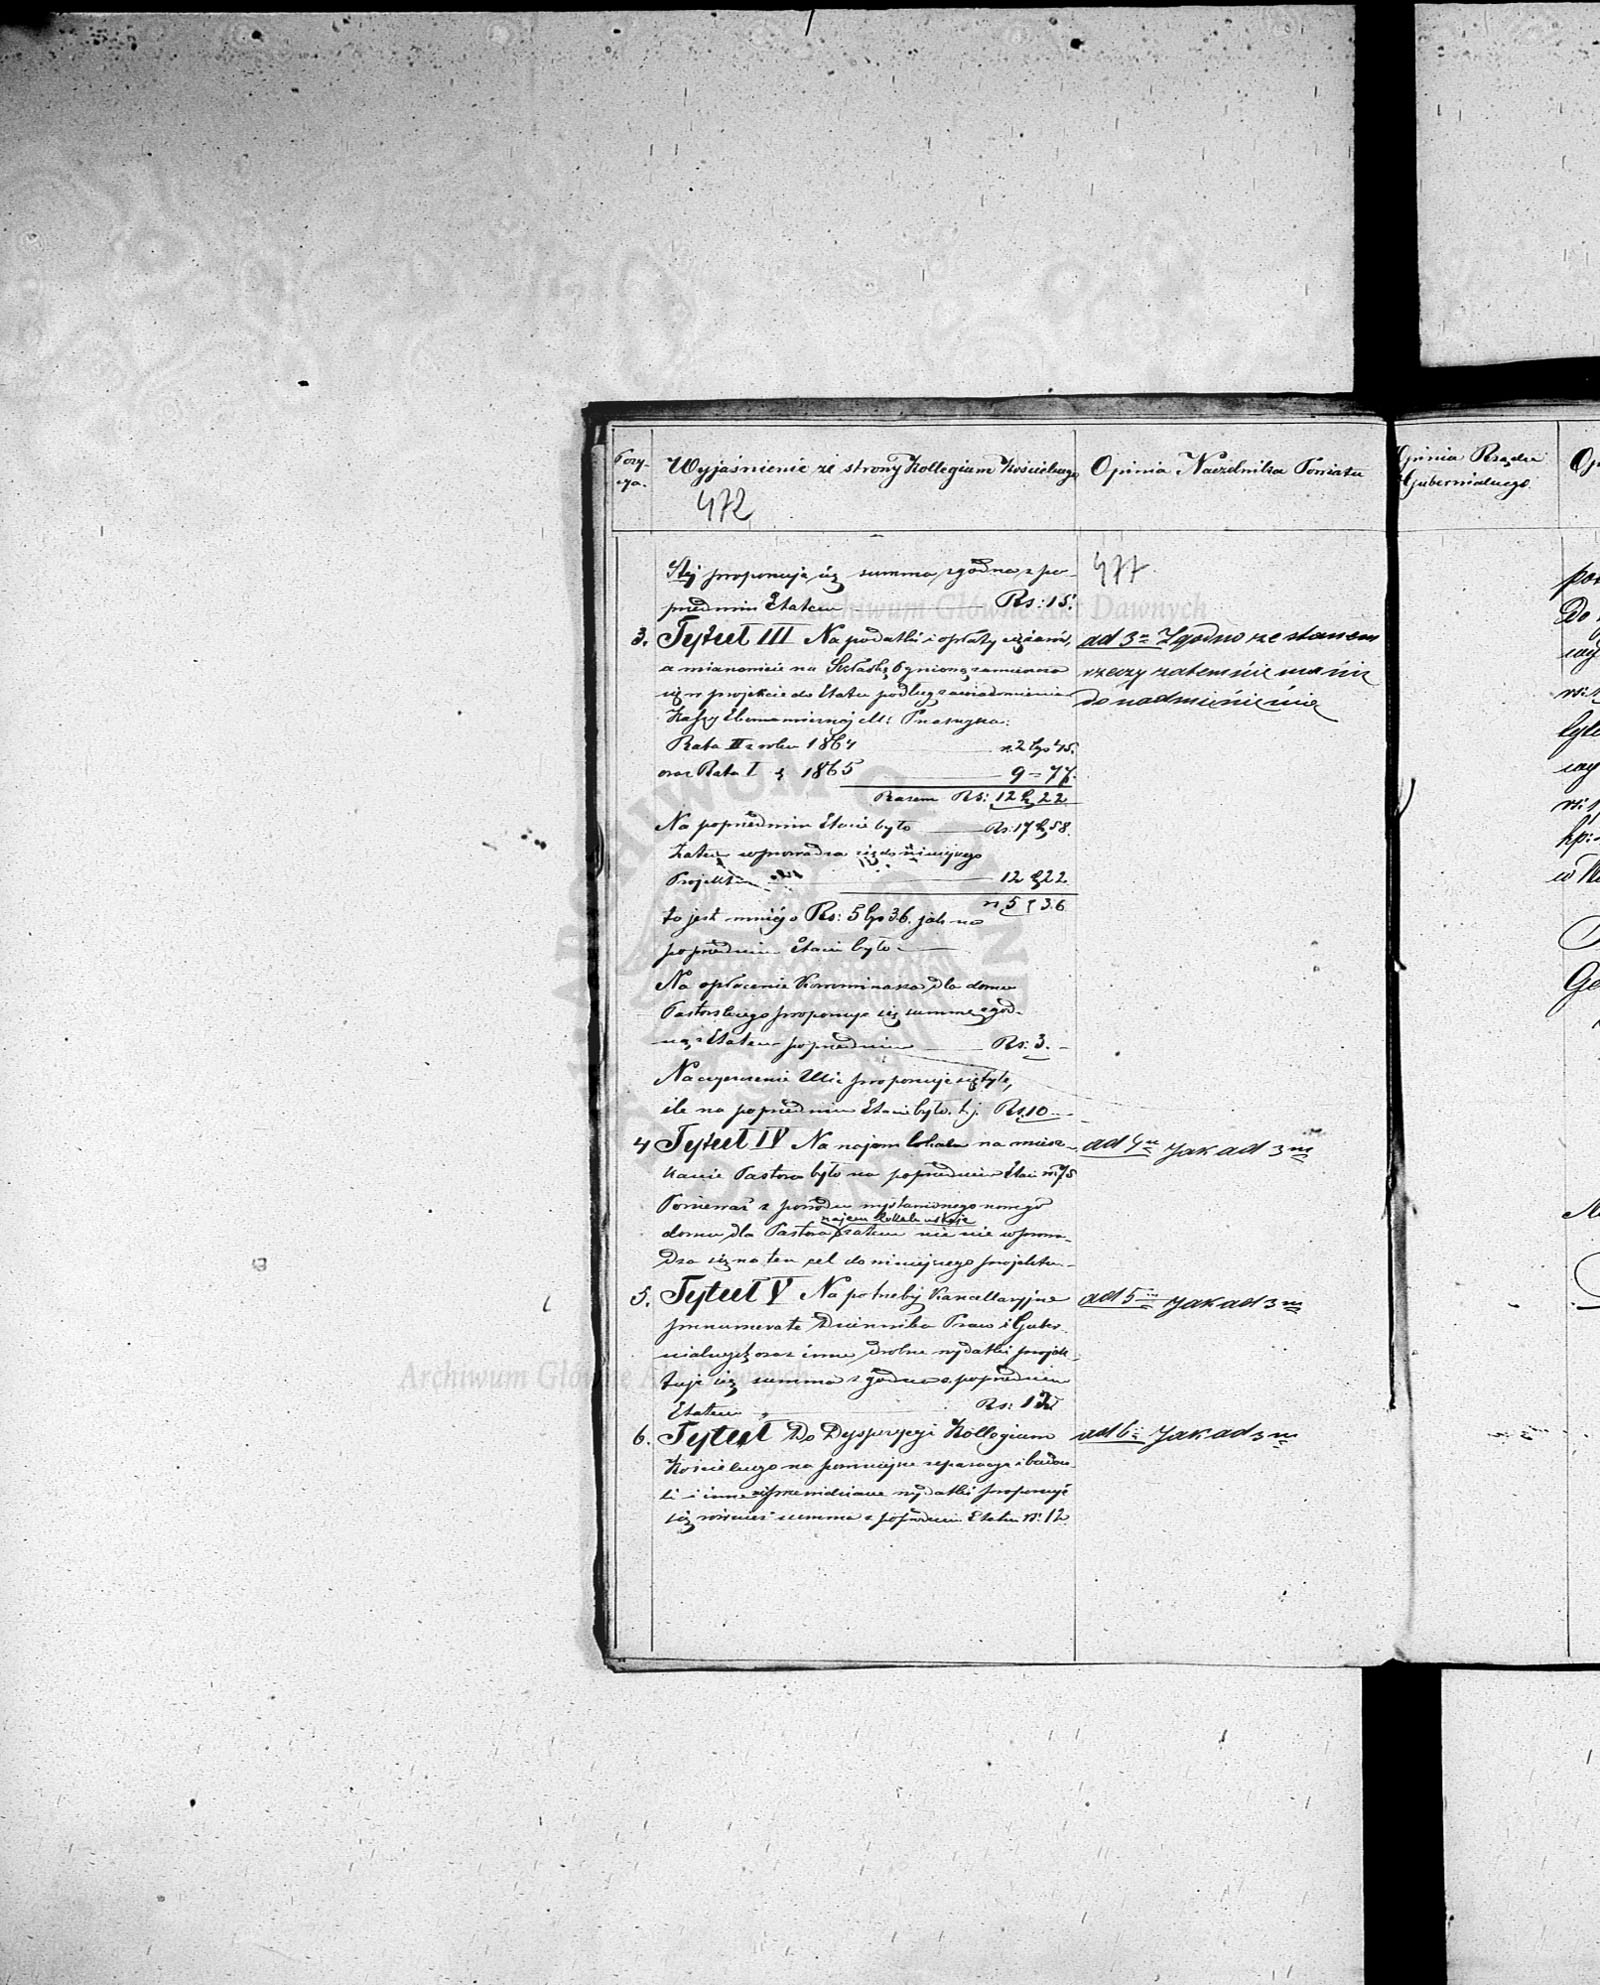 Pozy-
cya.
Wyjaśnienie ze strony Kollegium Kościelnego
Opinia Naczelnika Powiatu
Opinia Rządu
Gubernialnego.
472
477
proponuje się summa zgodna z po-
przednim Etatem Rs: 15.
3. Tytuł III Na podatki i opłaty
a mianowicie na Składkę Ogniową zamieszcza
się w projekcie do Etatu podług zawiadomienia
Kassy Ekonomicznej M: Przasnysza:
Rata II z roku 1864 r. 2 kp 45.
oraz Rata I z 1865 9 = 77.
Razem Rs: 12 k 22
Na poprzednim Etacie było Rs: 17 k 58.
Zatem wprowadza się do niniejszego
Projektu 12 k 22
r. 5 k 36
to jest mniéj o Rs: 5 kp 36. jak na
poprzednim Etacie było.
Na opłacenie Kominiarza dla domu
Pastorskiego proponuje się summę zgod-
ną z Etatem poprzednim Rs: 3.
Na czyszczenie Ulic proponuje się tyle,
ile na poprzednim Etacie było. t.j. Rs. 10
4 Tytuł IV Na najem lokalu na miesz-
kanie Pastora było na poprzednim Etacie rs. 75
Ponieważ z powodu wystawionego nowego
najem lokalu ustaje
domu dla Pastora zatem nic nie wprowa-
dza się na ten cel do niniejszego projektu.
5. Tytuł V Na potrzeby Kancellaryjne
prenumeratę Dziennika Praw i Guber-
nialnych oraz inne drobne wydatki projek-
tuje się summa zgodna z poprzednim
Etatem Rs: 12
6. Tytuł Do Dyspozycyi Kollegium
Kościelnego na pomniejsze reparacye i budow
li i inne nieprzewidziane wydatki proponuje
się również summa z poprzednim Etatem rs: 12
ad 3m Zgodno ze stanem
rzeczy zatem nic ma nic
do nadmienienia
ad 4m Jak ad 3m
ad 5m Jak ad 3m
ad 6m Jak ad 3m
Archiwum Główne Akt Dawnych
Archiwum Główne Akt Dawnych